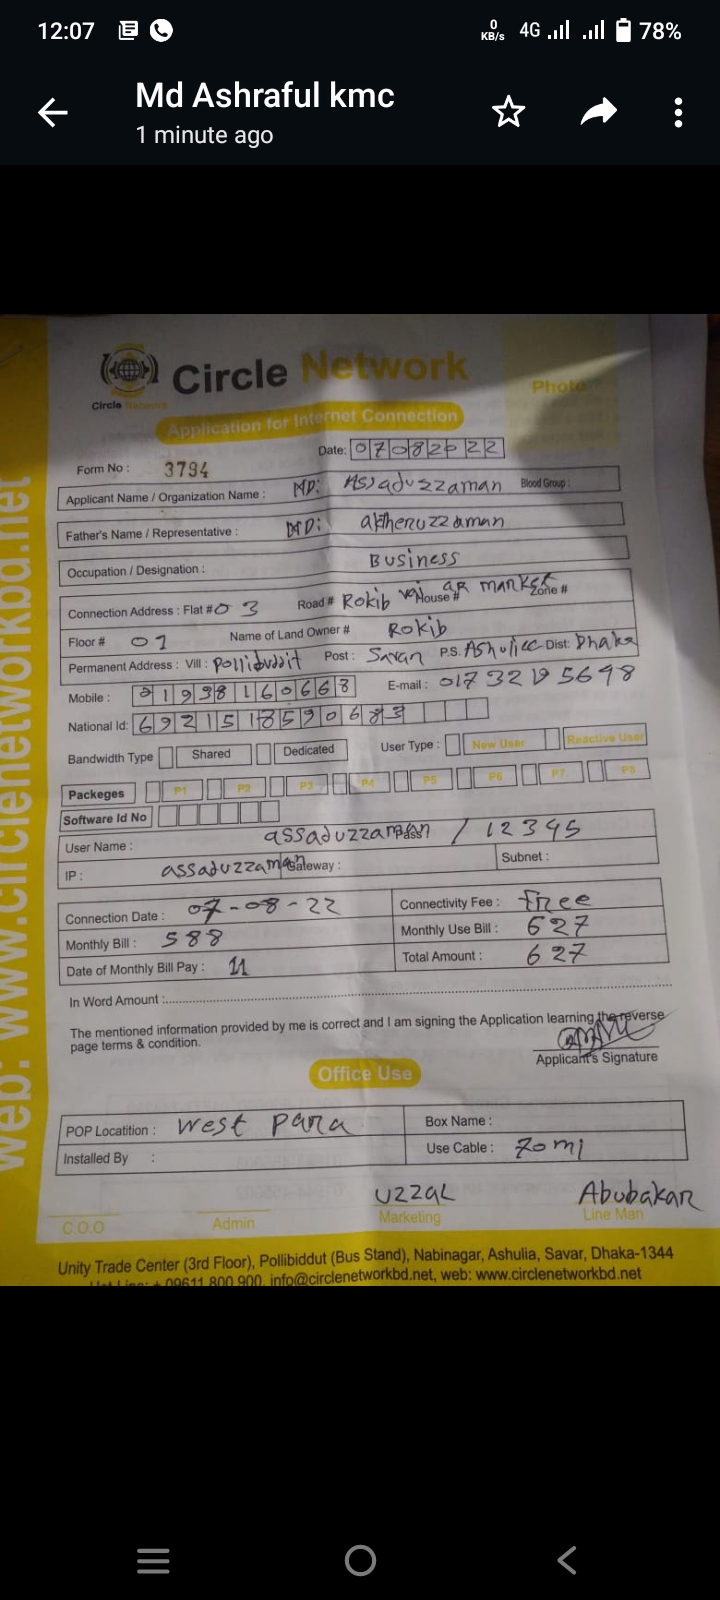 12:07 0 KB/s 4G 78%
Md Ashraful kmc
1 minute ago
Circle Network
Circle Network
Photo
Application for Internet Connection
Date: 07082022
Form No : 3794
Applicant Name / Organization Name : MD: Assaduzzaman Blood Group :
Father's Name / Representative : MD: aktheruzzaman
Occupation / Designation : Business
Connection Address : Flat # 03 Road # Rokib House # AR market Zone #
Floor # 01 Name of Land Owner # Rokib
Permanent Address : Vill : Post : Savar P.S. Dist: Dhaka
Mobile : E-mail :
National Id:
Bandwidth Type Shared Dedicated User Type : New User Reactive User
Packeges P1 P2 P3 P4 P5 P6 P7 P8
Software Id No
User Name : assaduzzaman Pass : / 12345
IP : assaduzzaman Gateway : Subnet :
Connection Date : 07-08-22 Connectivity Fee : Free
Monthly Bill : 588 Monthly Use Bill : 627
Date of Monthly Bill Pay : 11 Total Amount : 627
In Word Amount :
The mentioned information provided by me is correct and I am signing the Application learning the reverse
page terms & condition.
Applicant's Signature
Office Use
POP Locatition : west para Box Name :
Installed By : Use Cable : 70 mi
UZZAL Abubakar
C.O.O Admin Marketing Line Man
Unity Trade Center (3rd Floor), Pollibiddut (Bus Stand), Nabinagar, Ashulia, Savar, Dhaka-1344
Hot Line: + 09611 800 900, info@circlenetworkbd.net, web: www.circlenetworkbd.net
web: www.circlenetworkbd.net